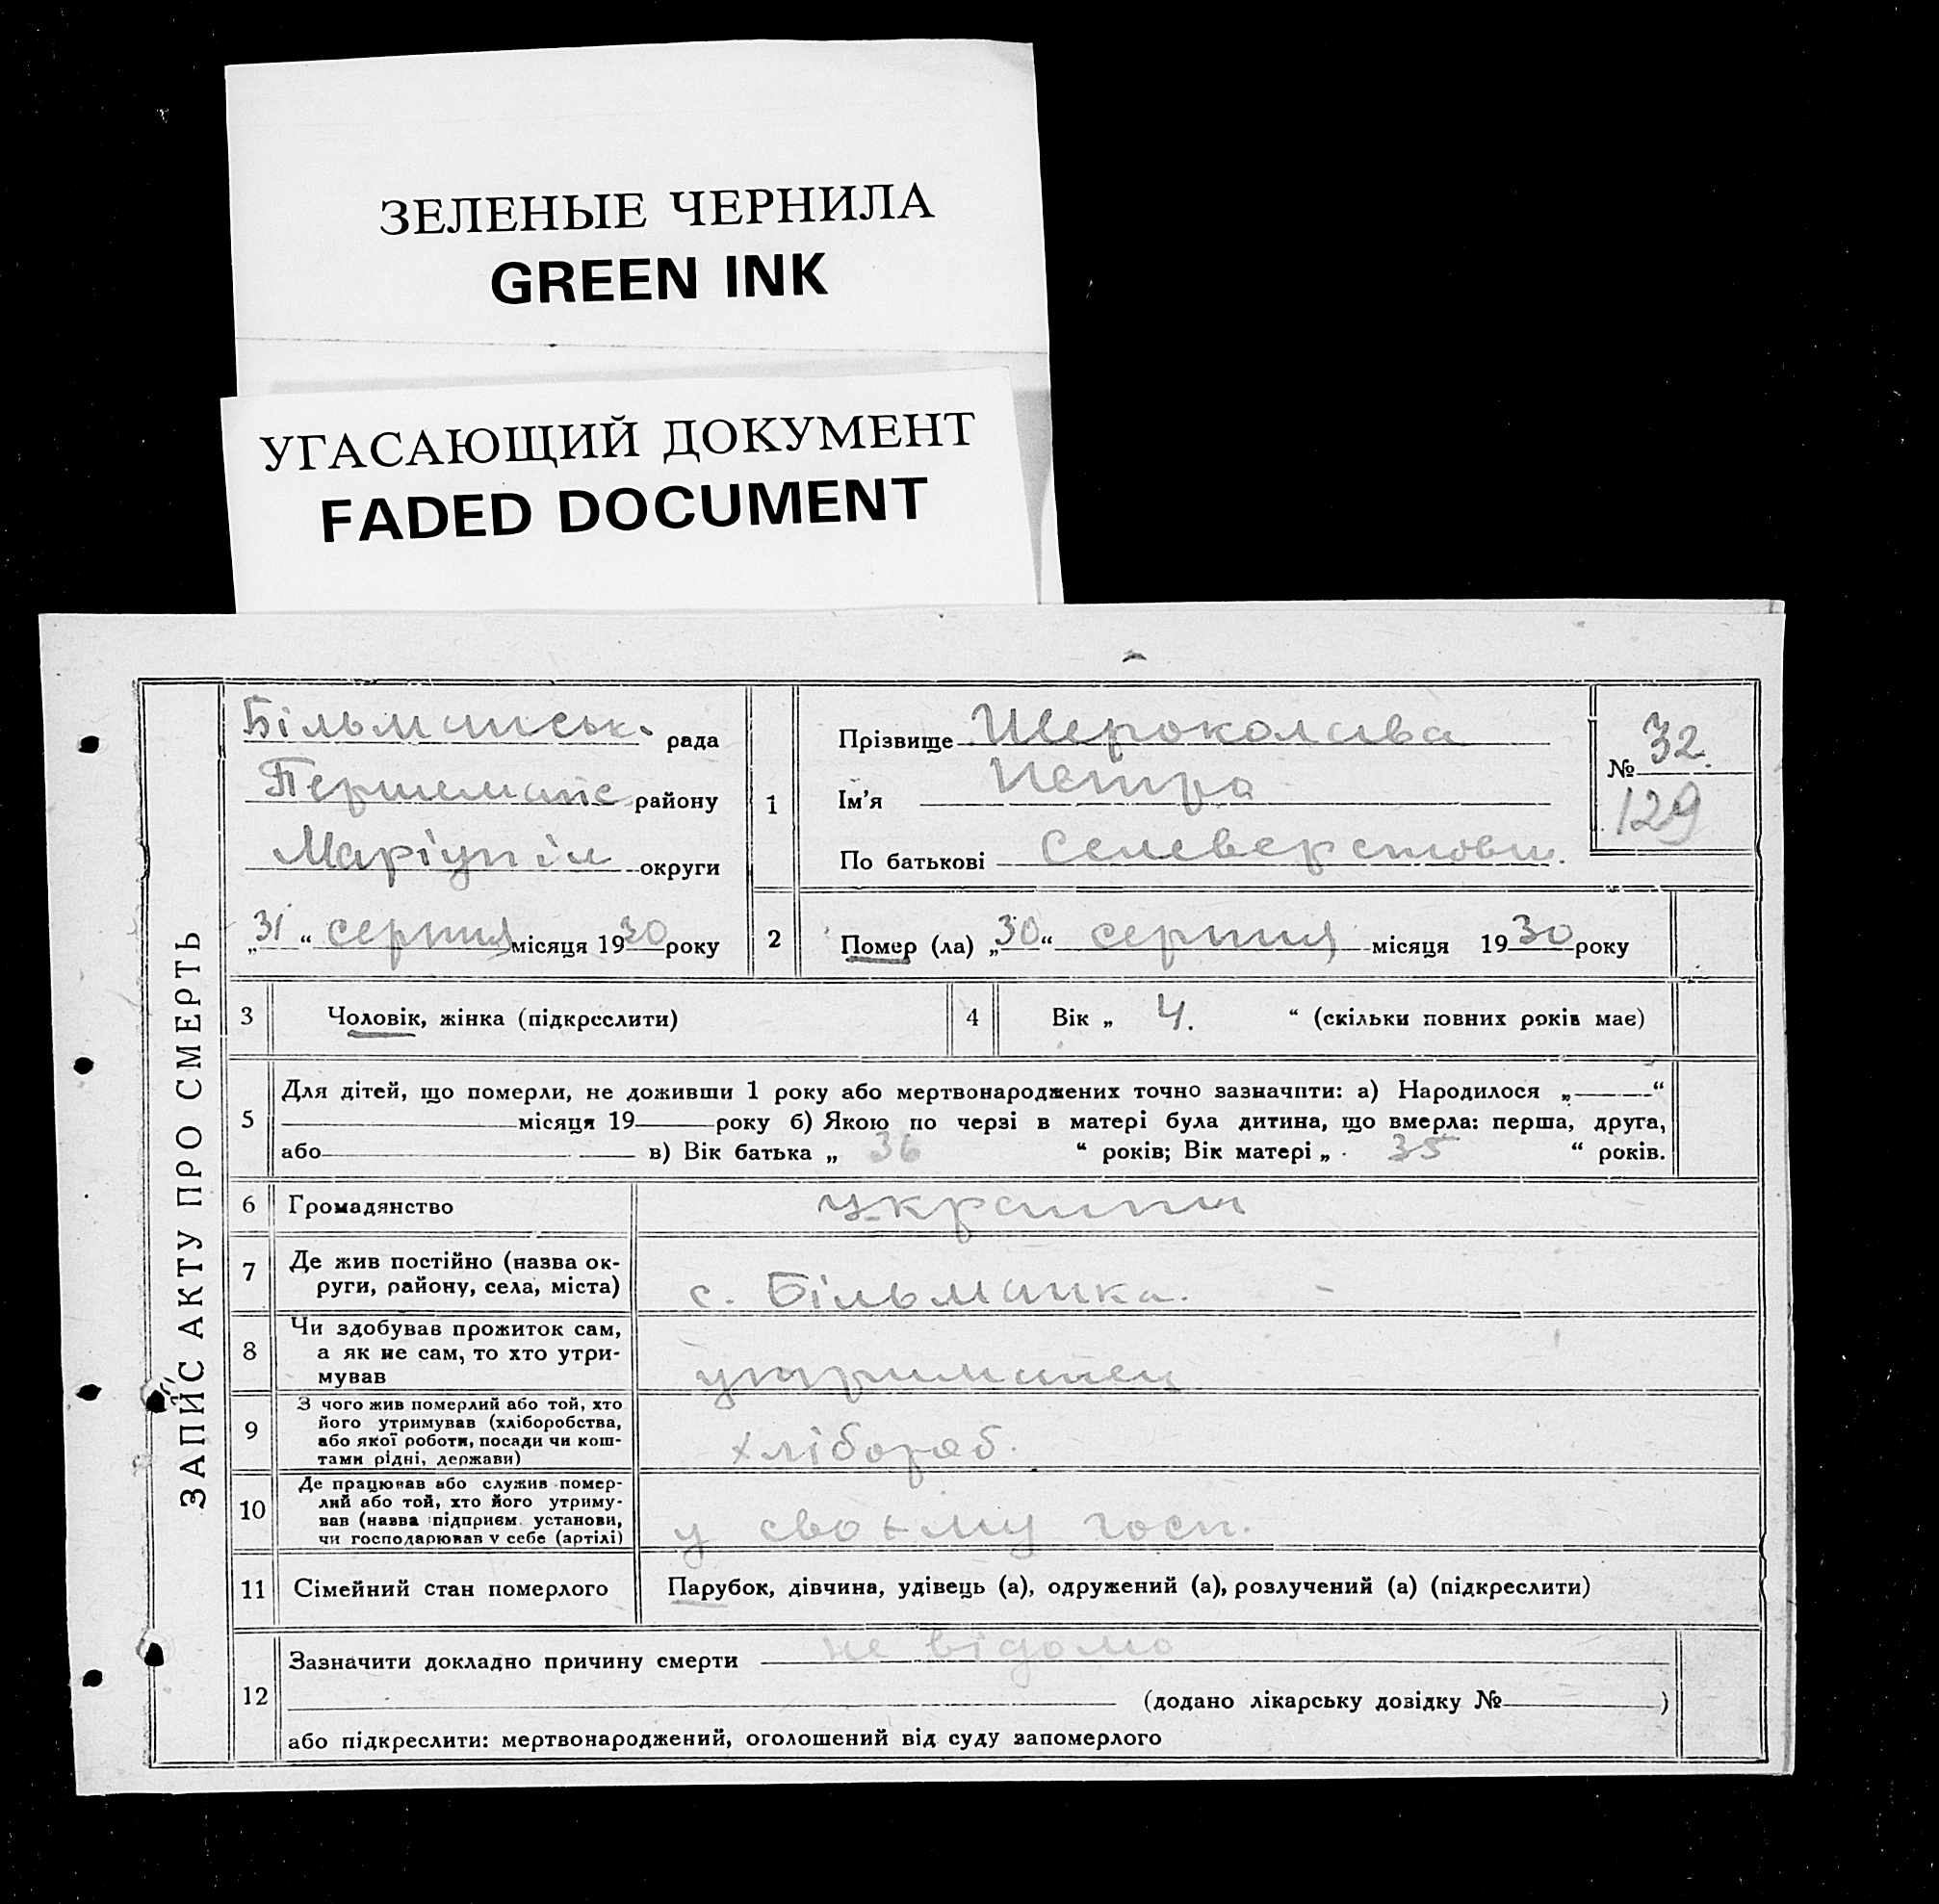 ЗЕЛЕНЫЕ ЧЕРНИЛА
GREEN INK
УГАСАЮЩИЙ ДОКУМЕНТ
FADED DOCUMENT
ЗАПИС АКТУ ПРО СМЕРТЬ
Більманськ. рада
Першемайс району
Маріупіл округи
„31“ серпня місяця 1930 року
1
Прізвище Шероколава
Ім'я Петро
По батькові Селеверстови.
№ 32.
129
2 Помер (ла) „30“ серпня місяця 1930 року
3 Чоловік, жінка (підкреслити)
4 Вік „ 4. “ (скільки повних років має)
5 Для дітей, що померли, не доживши 1 року або мертвонароджених точно зазначити: а) Народилося „ “
місяця 19 року б) Якою по черзі в матері була дитина, що вмерла: перша, друга,
або в) Вік батька „ 36 “ років; Вік матері „ 35 “ років.
6 Громадянство
7 Де жив постійно (назва ок-
руги, району, села, міста) с. Більманка.
8 Чи здобував прожиток сам,
а як не сам, то хто утри-
мував утриманец
9 З чого жив померлий або той, хто
його утримував (хліборобства,
або якої роботи, посади чи кош-
тами рідні, держави) хлібороб.
10 Де працював або служив помер-
лий або той, хто його утриму-
вав (назва підприєм. установи,
чи господарював у себе (артілі) у своєму госп.
11 Сімейний стан померлого Парубок, дівчина, удівець (а), одружений (а), розлучений (а) (підкреслити)
12 Зазначити докладно причину смерти не відомо
(додано лікарську довідку № )
або підкреслити: мертвонароджений, оголошений від суду запомерлого